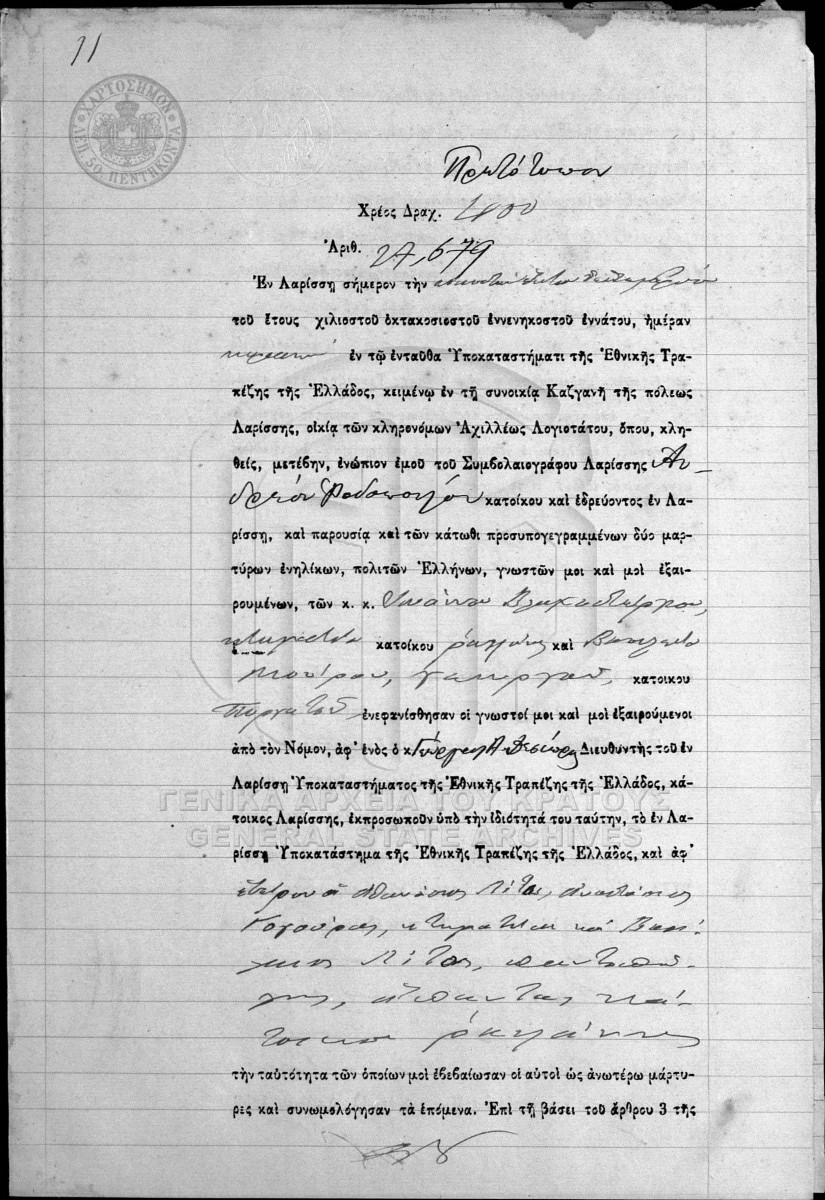 11
ΧΑΡΤΟΣΗΜΟΝ
ΛΕΠ. 50. ΠΕΝΤΗΚΟΝΤΑ
Πρωτότυπον
Χρέος Δραχ.
Ἀριθ. 27,679
Ἐν Λαρίσσῃ σήμερον τὴν
τοῦ ἔτους χιλιοστοῦ ὀκτακοσιοστοῦ ἐννενηκοστοῦ ἐννάτου, ἡμέραν
ἐν τῷ ἐνταῦθα Ὑποκαταστήματι τῆς Ἐθνικῆς Τρα-
πέζης τῆς Ἑλλάδος, κειμένῳ ἐν τῇ συνοικίᾳ Καζγανῆ τῆς πόλεως
Λαρίσσης, οἰκίᾳ τῶν κληρονόμων Ἀχιλλέως Λογιοτάτου, ὅπου, κλη-
θείς, μετέβην, ἐνώπιον ἐμοῦ τοῦ Συμβολαιογράφου Λαρίσσης Ἀν-
δρέου Ροδοπούλου κατοίκου καὶ ἑδρεύοντος ἐν Λα-
ρίσσῃ, καὶ παρουσίᾳ καὶ τῶν κάτωθι προσυπογεγραμμένων δύο μαρ-
τύρων ἐνηλίκων, πολιτῶν Ἑλλήνων, γνωστῶν μοι καὶ μὴ ἐξαι-
ρουμένων, τῶν κ. κ. Ἰωάννου Βλαχοστέργου,
κτηματίου κατοίκου ῥαψάνης καὶ Βασιλείου
γεωργοῦ, κατοίκου
ἐνεφανίσθησαν οἱ γνωστοί μοι καὶ μὴ ἐξαιρούμενοι
ἀπὸ τὸν Νόμον, ἀφ' ἑνὸς ὁ κ. Γεώργιος Α. Διευθυντὴς τοῦ ἐν
Λαρίσσῃ Ὑποκαταστήματος τῆς Ἐθνικῆς Τραπέζης τῆς Ἑλλάδος, κά-
τοικος Λαρίσσης, ἐκπροσωποῦν ὑπὸ τὴν ἰδιότητά του ταύτην, τὸ ἐν Λα-
ρίσσῃ Ὑποκατάστημα τῆς Ἐθνικῆς Τραπέζης τῆς Ἑλλάδος, καὶ ἀφ'
ἑτέρου οἱ Ἀθανάσιος Ἀναστάσιος
κτηματίαι καὶ Βασί-
λειος παντοπώ-
λης, ἅπαντες κά-
τοικοι ῥαψάνης
τὴν ταὐτότητα τῶν ὁποίων μοὶ ἐβεβαίωσαν οἱ αὐτοὶ ὡς ἀνωτέρω μάρτυ-
ρες καὶ συνωμολόγησαν τὰ ἑπόμενα. Ἐπὶ τῇ βάσει τοῦ ἄρθρου 3 τῆς
ΓΕΝΙΚΑ ΑΡΧΕΙΑ ΤΟΥ ΚΡΑΤΟΥΣ
GENERAL STATE ARCHIVES